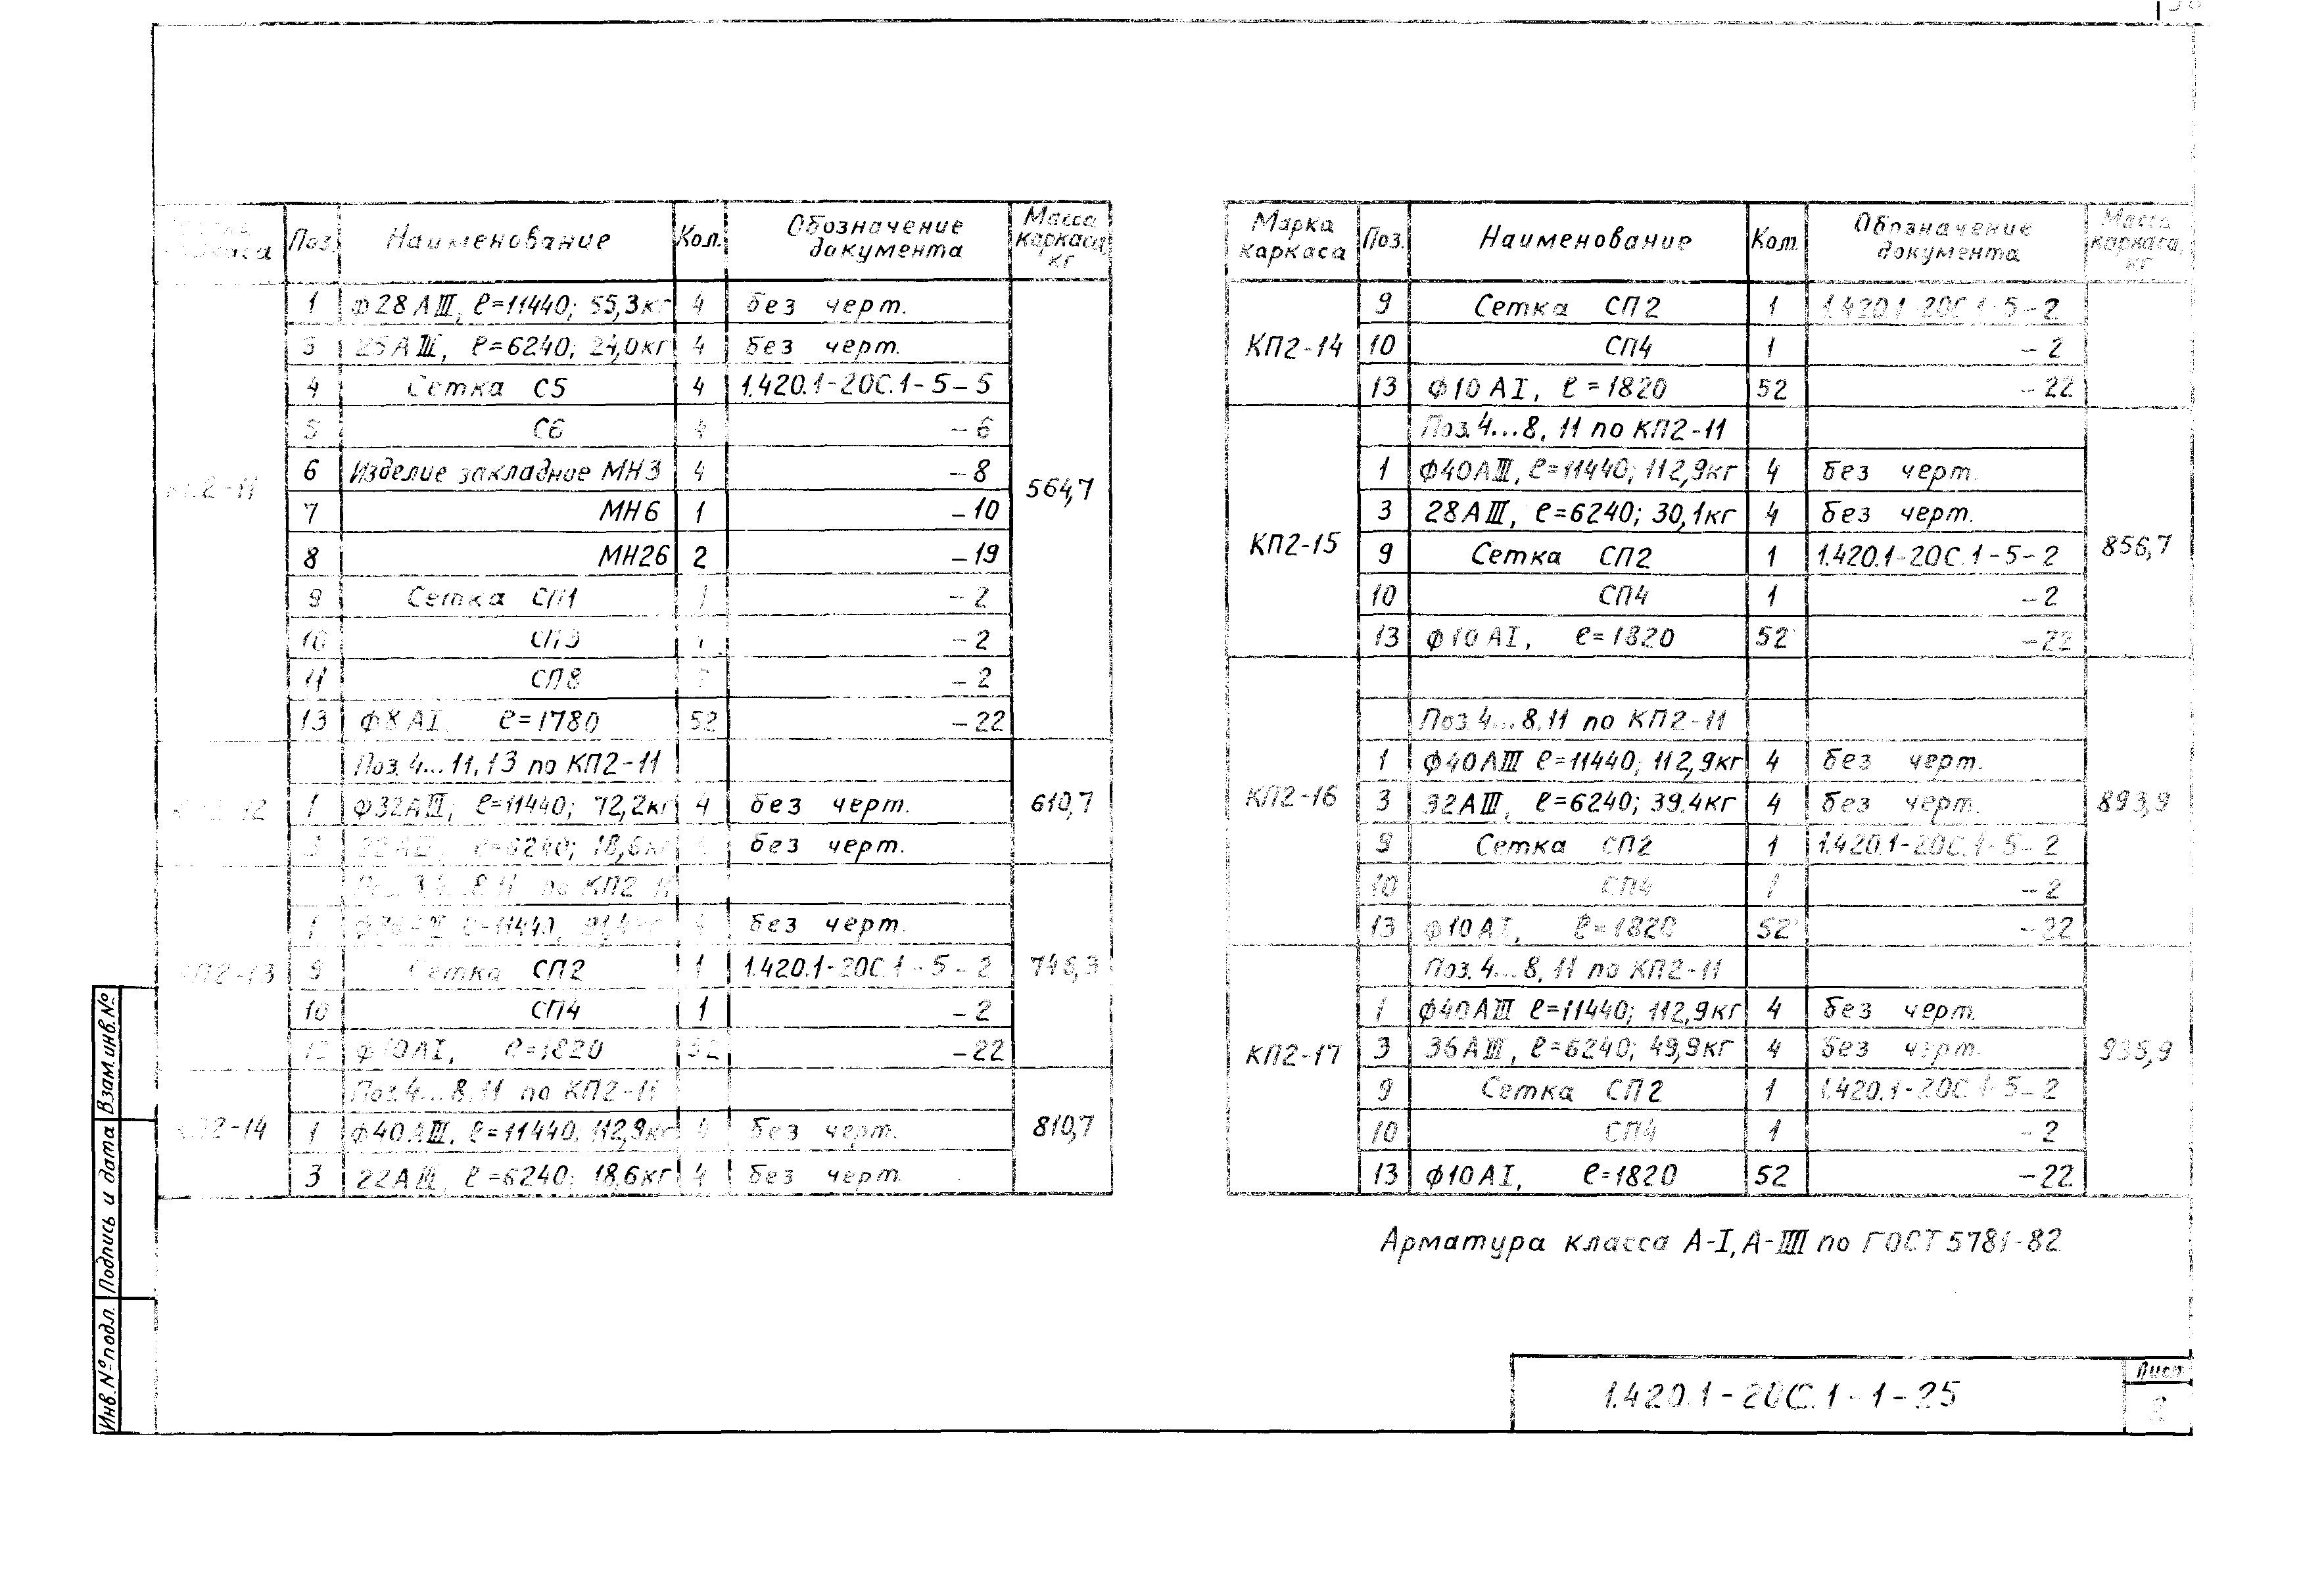 каркаса Поз. Наименование Кол. Обозначение документа Масса каркаса, кг
1 Ф28АIII, ℓ=11440; 55,3кг 4 без черт.
3 25АIII, ℓ=6240; 24,0кг 4 без черт.
4 Сетка С5 4 1.420.1-20С.1-5-5
5 С6 4 -6
6 Изделие закладное МН3 4 -8
КП2-11 564,7
7 МН6 1 -10
8 МН26 2 -19
9 Сетка СП1 1 -2
10 СП3 1 -2
11 СП8 -2
13 Ф8АI, ℓ=1780 52 -22
Поз.4...11,13 по КП2-11
КП2-12 1 Ф32АIII; ℓ=11440; 72,2кг 4 без черт. 610,7
3 22АIII, ℓ=6240; 18,6кг 4 без черт.
Поз.3,4...8,11 по КП2-11
1 Ф36АIII ℓ=11440, 91,4кг 4 без черт.
КП2-13 9 Сетка СП2 1 1.420.1-20С.1-5-2
10 СП4 1 -2
ф10АI, ℓ=1820 52 -22
Поз.4...8,11 по КП2-11
КП2-14 1 ф40АIII, ℓ=11440; 112,9кг 4 без черт. 810,7
3 22АIII, ℓ=6240; 18,6кг 4 без черт.
Марка каркаса Поз. Наименование Кол. Обозначение документа Масса каркаса, кг
9 Сетка СП2 1 1.420.1-20С.1-5-2
КП2-14 10 СП4 1 -2
13 Ф10АI, ℓ=1820 52 -22
Поз.4...8,11 по КП2-11
1 Ф40АIII, ℓ=11440; 112,9кг 4 без черт.
3 28АIII, ℓ=6240; 30,1кг 4 без черт.
КП2-15 856,7
9 Сетка СП2 1 1.420.1-20С.1-5-2
10 СП4 1 -2
13 ф10АI, ℓ=1820 52 -22
Поз.4...8,11 по КП2-11
1 Ф40АIII ℓ=11440; 112,9кг 4 без черт.
КП2-16 3 32АIII, ℓ=6240; 39.4кг 4 без черт. 893,9
9 Сетка СП2 1 1.420.1-20С.1-5-2
10 СП4 1 -2
13 ф10АI, ℓ=1820 52 -22
Поз.4...8,11 по КП2-11
1 ф40АIII ℓ=11440; 112,9кг 4 без черт.
КП2-17 3 36АIII, ℓ=6240; 49,9кг 4 без черт. 935,9
9 Сетка СП2 1 1.420.1-20С.1-5-2
10 СП4 1 -2
13 ф10АI, ℓ=1820 52 -22
Арматура класса А-I, А-III по ГОСТ 5781-82
Инв.№подл. Подпись и дата Взам.инв.№
1.420.1-20С.1-1-25
Лист
2